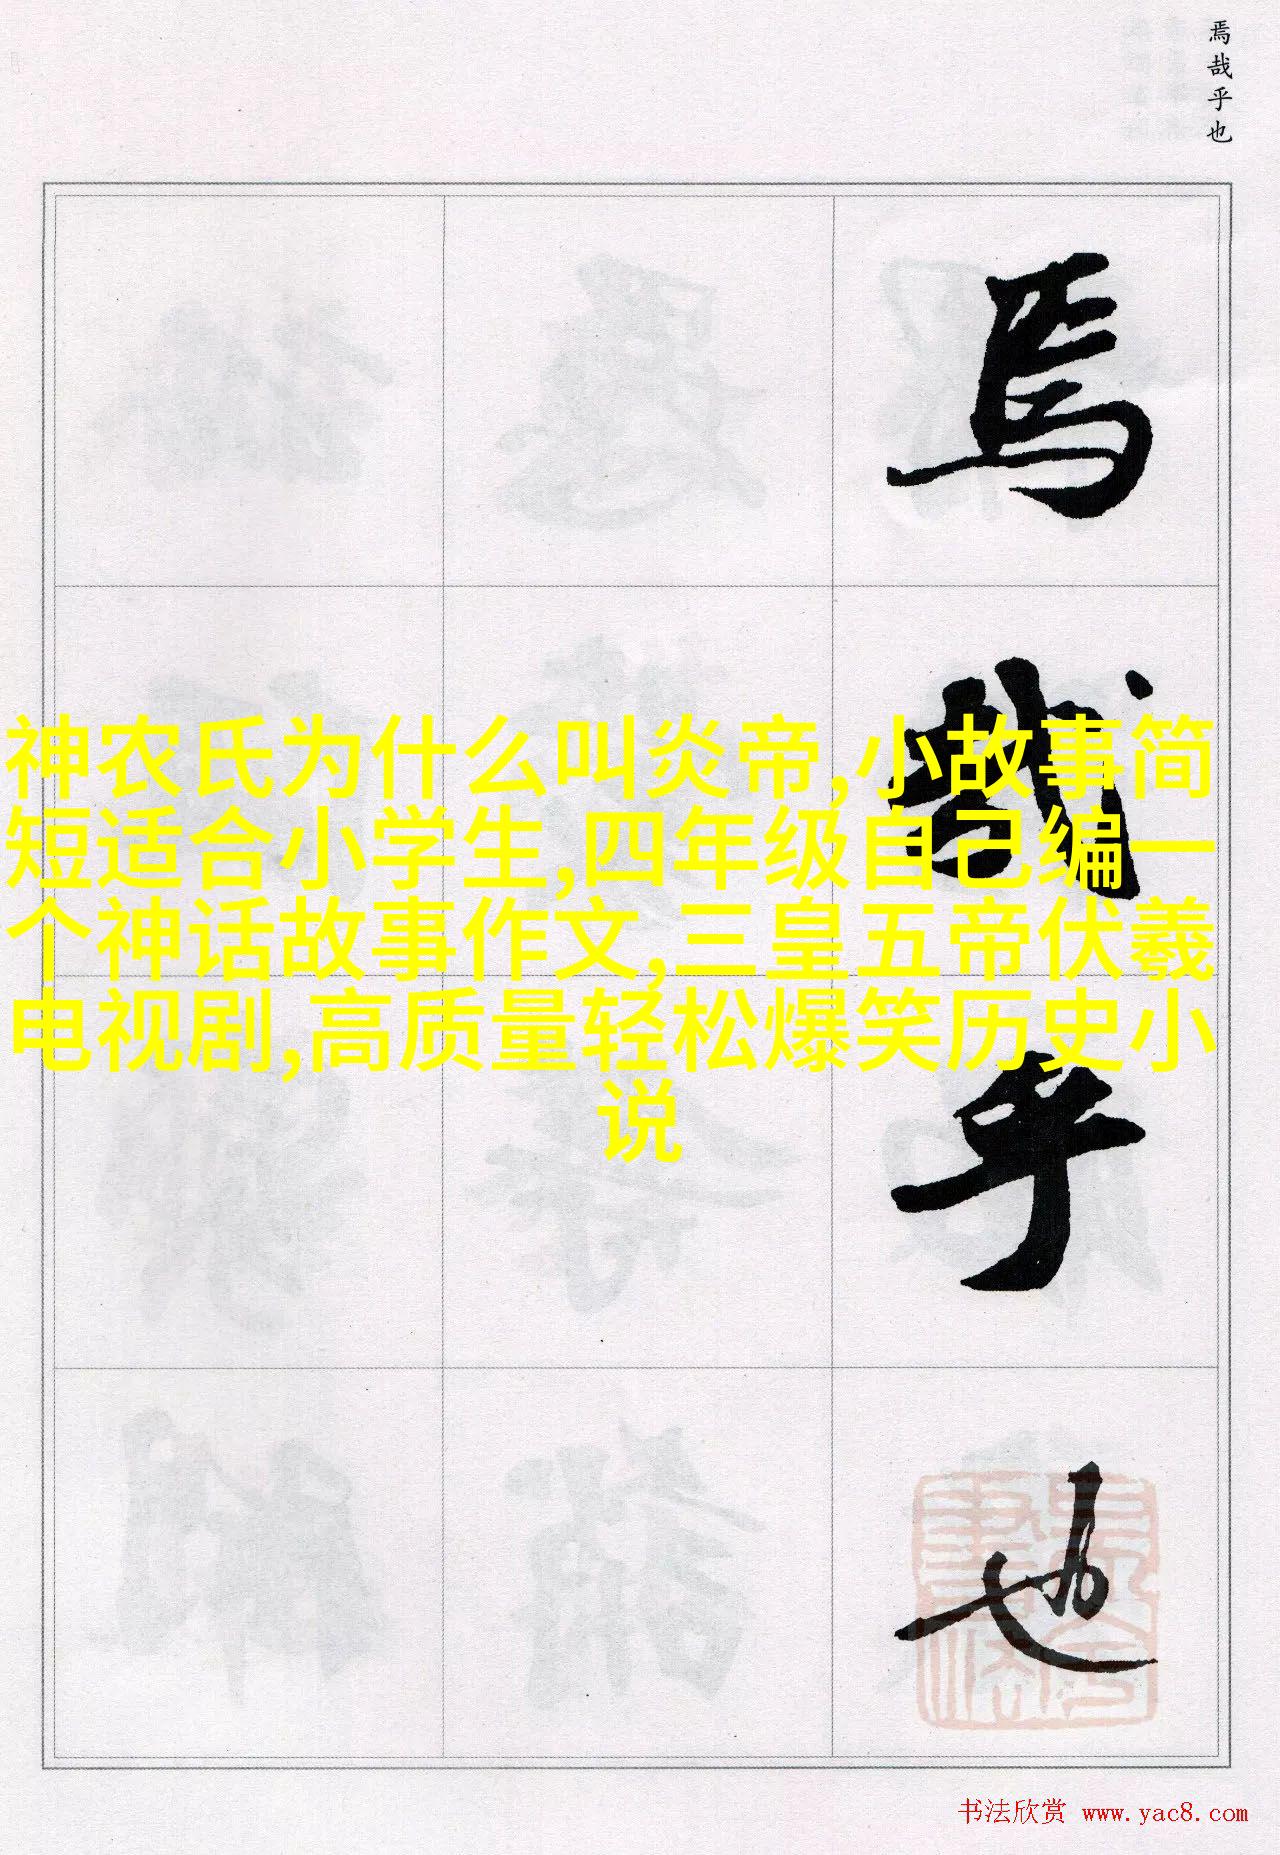 焉哉乎也
焉
哉
乎
也
神农氏为什么叫炎帝,小故事简
短适合小学生,四年级自己编一
个神话故事作文,三皇五帝伏羲
电视剧,高质量轻松爆笑历史小
说
书法欣赏 www.yac8.com